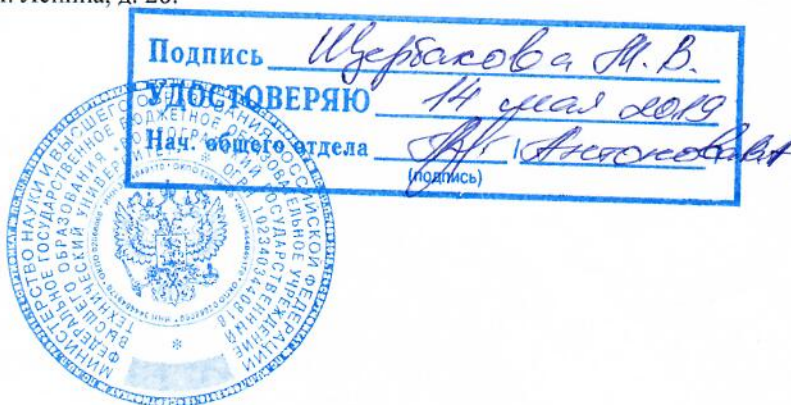 Ленина, д. 28.
Подпись Щербакова М. В.
УДОСТОВЕРЯЮ 14 мая 2019
Нач. общего отдела / Антонова
(подпись)
МИНИСТЕРСТВО НАУКИ И ВЫСШЕГО ОБРАЗОВАНИЯ РОССИЙСКОЙ ФЕДЕРАЦИИ
ФЕДЕРАЛЬНОЕ ГОСУДАРСТВЕННОЕ БЮДЖЕТНОЕ ОБРАЗОВАТЕЛЬНОЕ УЧРЕЖДЕНИЕ
ВЫСШЕГО ОБРАЗОВАНИЯ «ВОЛГОГРАДСКИЙ ГОСУДАРСТВЕННЫЙ
ТЕХНИЧЕСКИЙ УНИВЕРСИТЕТ» * ОГРН 1023403440818